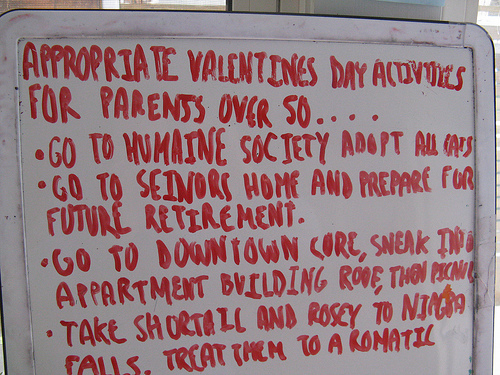 APPROPRIATE VALENTINES DAY ACTIVITIES
FOR PARENTS OVER 50....
• GO TO HUMAINE SOCIETY ADOPT ALL CATS
• GO TO SEINORS HOME AND PREPARE FOR
FUTURE RETIREMENT.
• GO TO DOWNTOWN CORE, SNEAK INTO
APPARTMENT BUILDING ROOF, THAN PICNIC
• TAKE SHORTAIL AND ROSEY TO
FALLS. TREAT THEM TO A ROMATIC